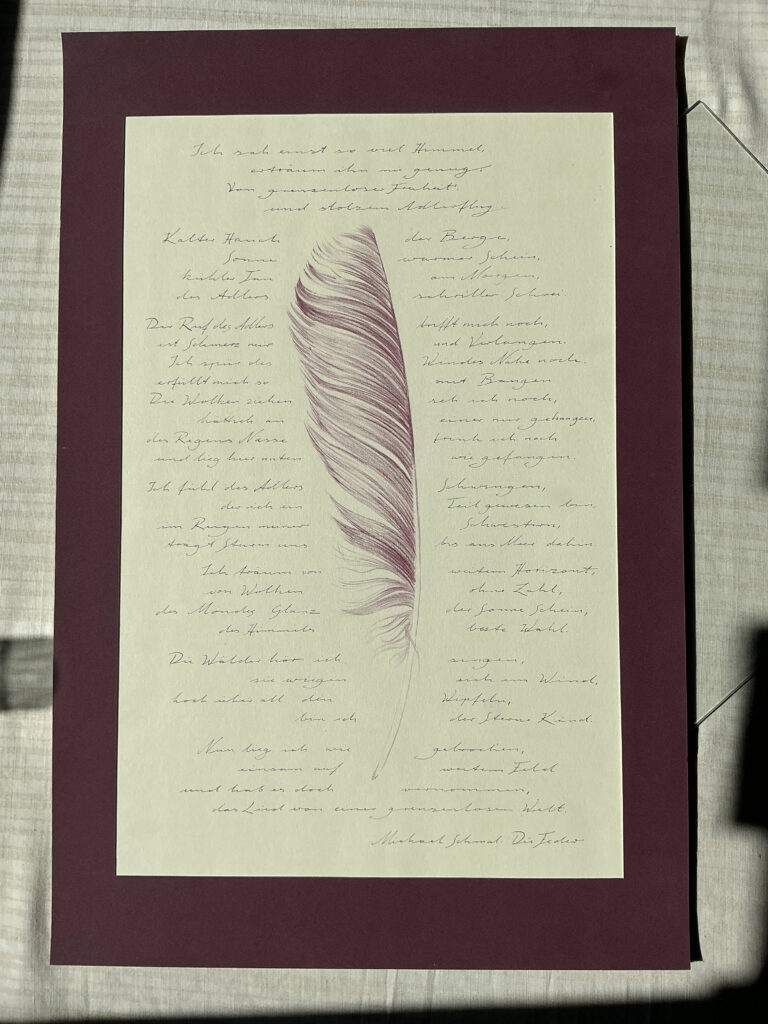 Ich sah einst so viel Himmel,
erträum ihn nie genug.
Von grenzenloser Freiheit
und stolzem Adlerflug.
Kalter Hauch der Berge,
Sonne warmer Schein,
kühler Tau am Morgen,
des Adlers schriller Schrei.
Der Ruf des Adlers trifft mich noch,
ist Schmerz nur und Verlangen.
Ich spür des Windes Nähe noch.
erfüllt mich so mit Bangen
Die Wolken ziehen seh ich noch,
an einer nur gehangen,
des Regens Nässe trink ich noch
und lieg hier unten wie gefangen.
Ich fühl des Adlers Schwingen,
der ich ein Teil gewesen bin,
im Ringen meiner Schwestern,
trägt Sturm uns bis ans Meer dahin.
Ich träum von weitem Horizont,
von Wolken ohne Zahl,
des Mondes Glanz der Sonne Schein,
des Himmels beste Wahl.
Die Wälder hör ich singen,
sie wiegen sich im Wind,
hoch über all den Wipfeln,
bin ich der Sterne Kind.
Nun lieg ich wie gebrochen,
einsam auf weitem Feld
und hab es doch vernommen,
das Lied von einer grenzenlosen Welt.
Michael Schmal. Die Feder